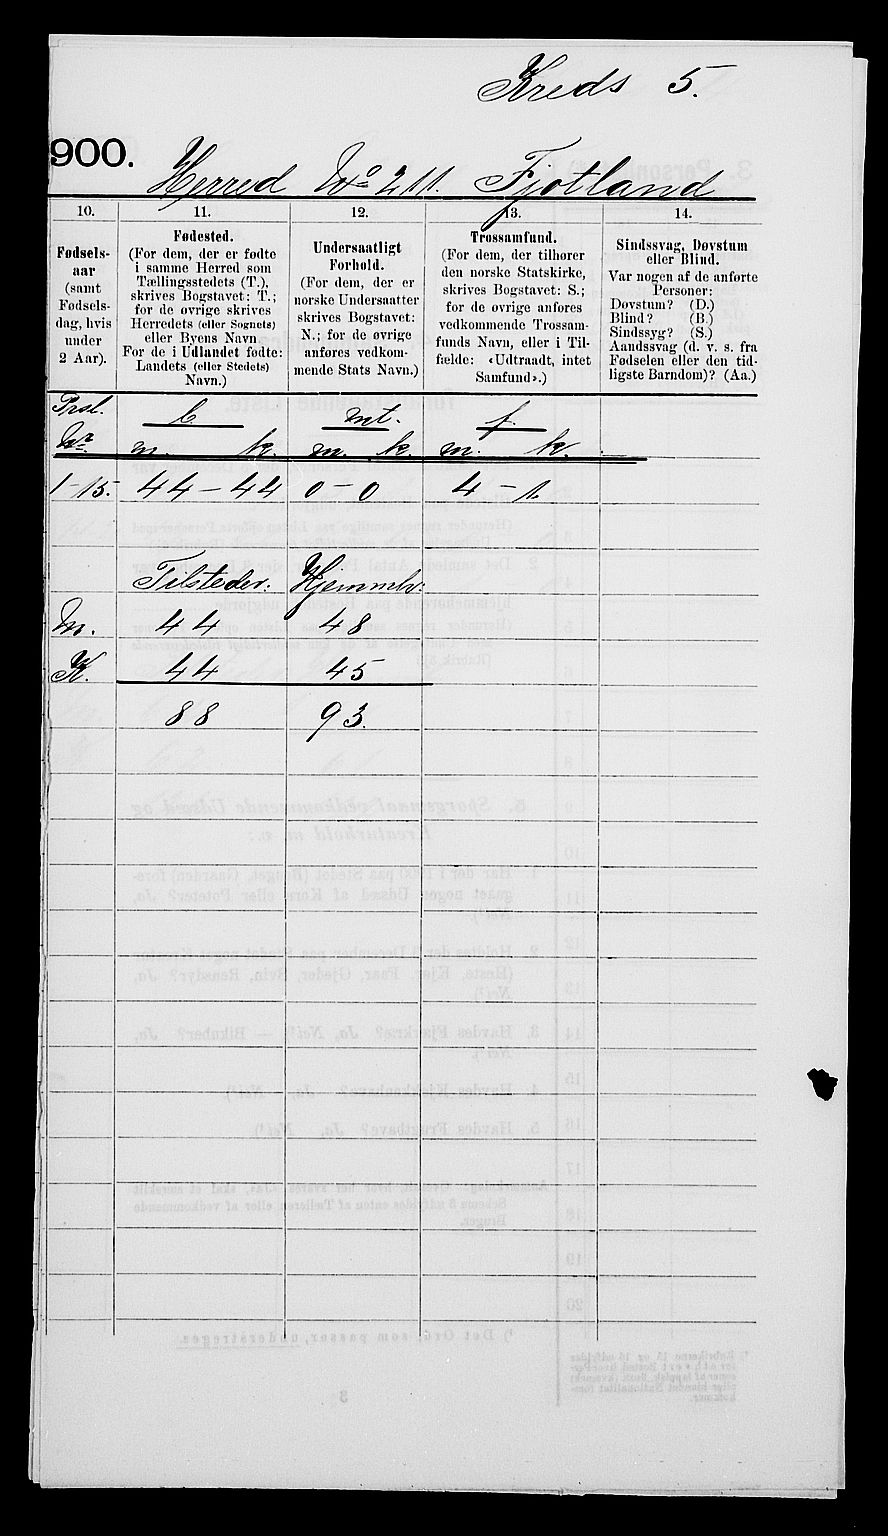 Kreds 5.
900.
Herred No 211. Fjotland
10.
11.
12.
13.
14.
Fødsels-
aar
(samt
Fødsels-
dag, hvis
under
2 Aar).
Fødested.
(For dem, der er fødte
i samme Herred som
Tællingsstedets (T.),
skrives Bogstavet: T.;
for de øvrige skrives
Herredets (eller Sognets)
eller Byens Navn
For de i Udlandet fødte:
Landets (eller Stedets)
Navn.)
Undersaatligt
Forhold.
(For dem, der er
norske Undersaatter
skrives Bogstavet:
N.; for de øvrige
anføres vedkom-
mende Stats Navn.)
Trossamfund.
(For dem, der tilhører
den norske Statskirke,
skrives Bogstavet: S.;
for de øvrige anføres
vedkommende Trossam-
funds Navn, eller i Til-
fælde: «Udtraadt, intet
Samfund».)
Sindssvag, Døvstum
eller Blind.
Var nogen af de anførte
Personer:
Døvstum? (D.)
Blind? (B.)
Sindssyg? (S.)
Aandssvag (d. v. s. fra
Fødselen eller den tid-
ligste Barndom)? (Aa.)
Prsl. b. mt. f.
Nr. m. k. m. k. m. k.
1-15. 44-44 0-0 4-1.
Tilsteder: Hjemmh:
M. 44 48
K. 44 45
88 93.